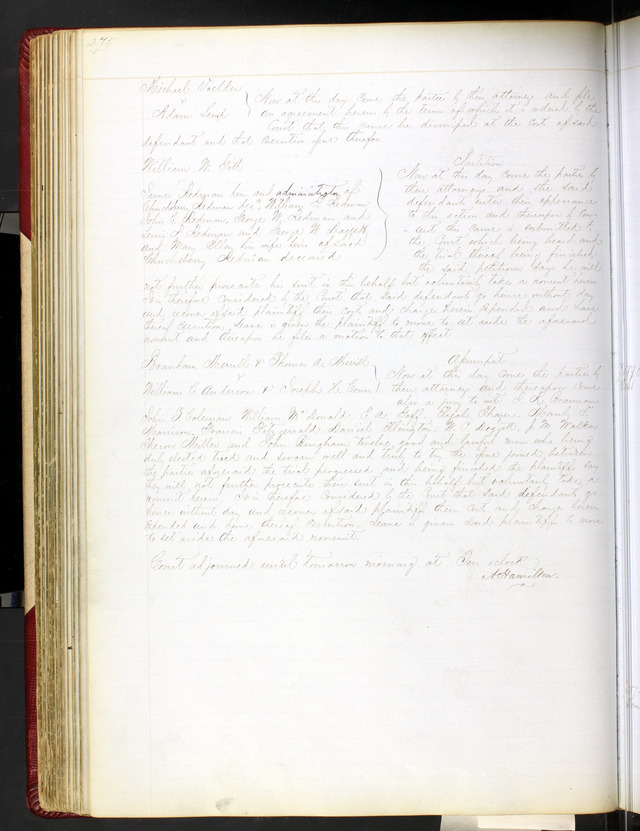 275
Michael Voelker
v
Adam Lend
Now at this day come the parties by their attorneys and file
an agreement herein by the terms of which it is ordered by the
Court that this cause be dismissed at the cost of said
defendant and that Execution issue therefor
William W. Gitt
Partition
James Redman heir and administrator of
Redman decd William E Redman
John E Redman, George W. Redman and
Redman and George W. Daggett
and Mary Ellen his wife heirs of said
Redman deceased
Now at this day come the parties by
their attorneys and the said
defendants enter their appearance
to this action and thereupon by con-
-sent this cause is submitted to
the Court which being heard and
the trial thereof being finished
the said petitioner says he will
not further prosecute his suit in this behalf but voluntarily takes a nonsuit herein
It is therefore Considered by the Court that said defendants go hence without day
and recover of said plaintiff their costs and charges herein Expended and have
thereof Execution, leave is given the plaintiff to move to set aside the aforesaid
nonsuit and thereupon he files a motion to that effect
Branham Merrill & Thomas A. Merrill
v
William C Anderson & Joseph H. Conn
Assumpsit
Now at this day come the parties by
their attorneys and thereupon come
also a jury to wit; Harman
John J Coleman William McDonald, E. A. Goff, Elijah Thayer, Frank T
Morrison, Francis Fitzgerald Daniel Ellington, W. C. Doggett, J. M. Walker
Theron Miller and John Bingham twelve good and lawful men who being
duly elected tried and sworn well and truly to try the issue joined between
the parties aforesaid the trial progressed and being finished the plaintiffs say
they will not further prosecute their suit in this behalf but voluntarily take a
nonsuit herein It is therefore Considered by the Court that said defendants go
hence without day and recover of said plaintiffs their costs and charges herein
Expended and have thereof Execution, Leave is given said plaintiffs to move
to set aside the aforesaid nonsuit
Court adjourned until tomorrow morning at Ten oclock
A Hamilton